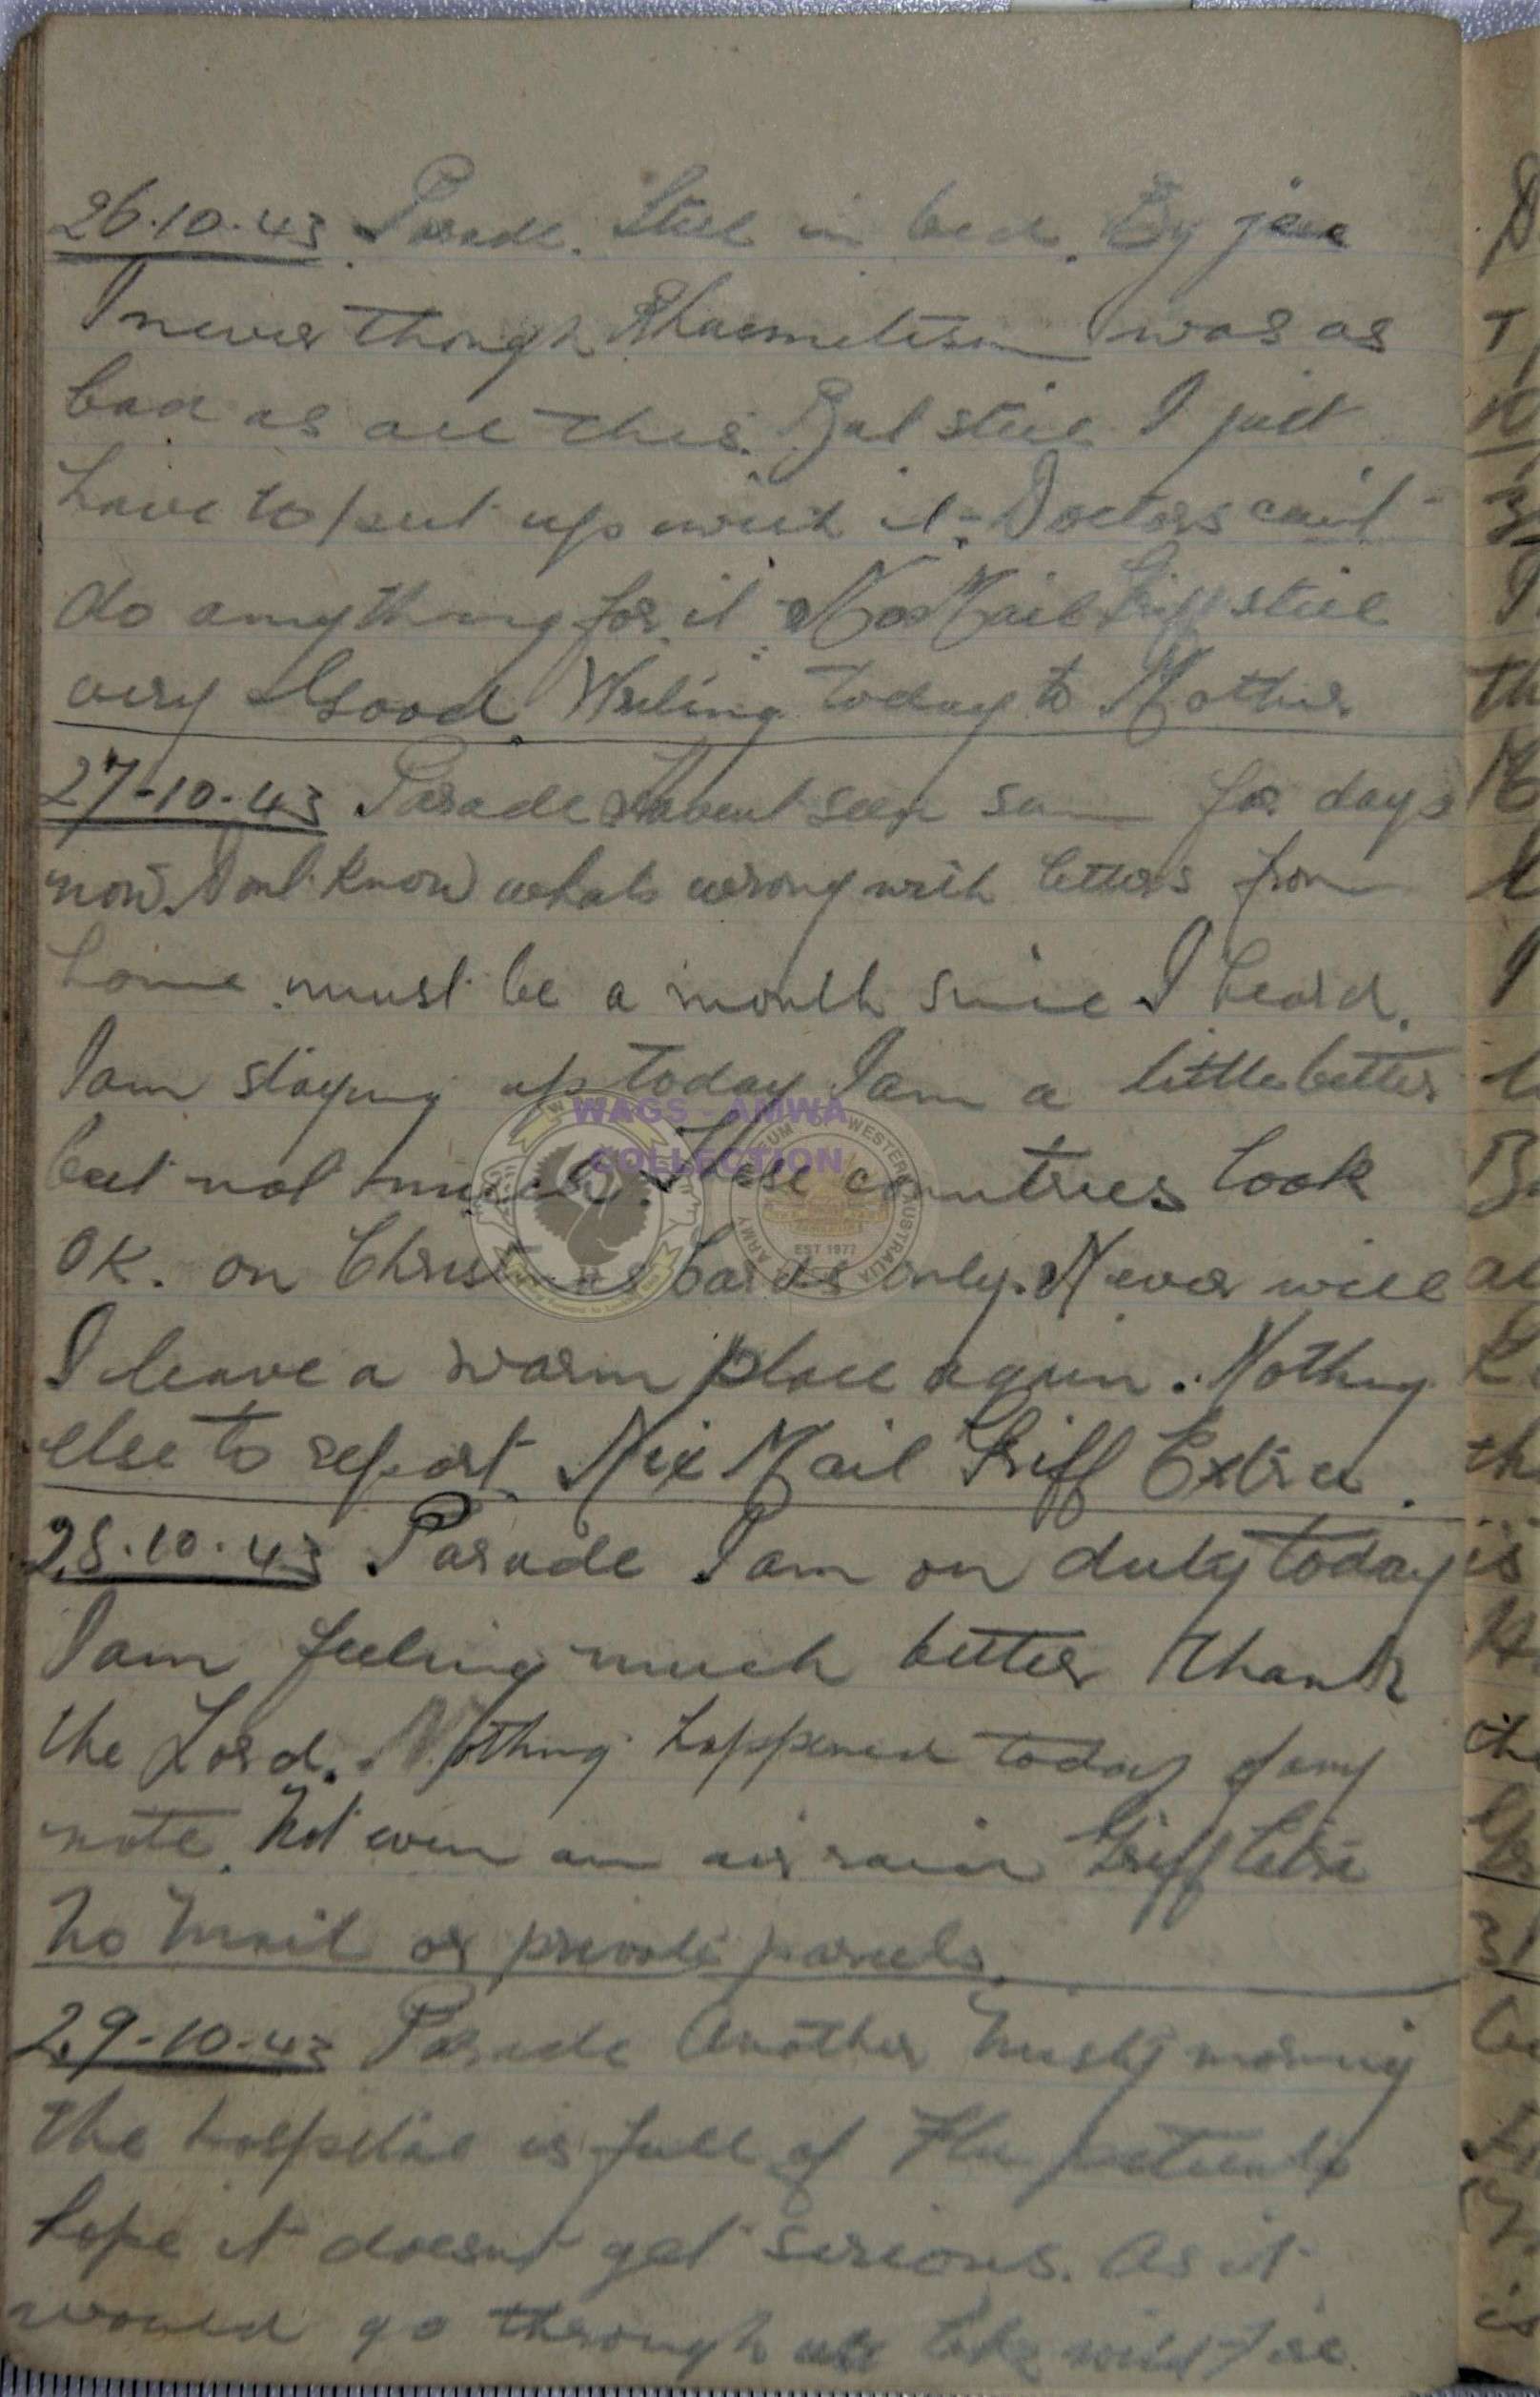 26.10.43 Parade. Still in bed. By jove
I never though Rhaemetism was as
bad as all this. But still I just
have to put up with it. Doctors cant
do anything for it. No Mail Griff still
very Good. Writing today to Mother
27-10-43 Parade Havent seen sun for days
now. Dont know whats wrong with letters from
home must be a month since I heard.
I am staying up today I am a little better
but not much. These countries look
OK. on Christmas Cards only. Never will
I leave a warm place again. Nothing
else to report. Nix Mail Griff Extra.
28.10.43 Parade I am on duty today
I am feeling much better thank
the Lord. Nothing happened today of any
note. Not even an air raid Griff Extra
No Mail or private parcels.
29-10-43 Parade Another misty morning
the hospital is full of Flu patients
hope it doesnt get serious. As it
would go through us like wild fire.
WAGS - AMWA
COLLECTION
WESTERN AUSTRALIA
ARMY
EST 1977